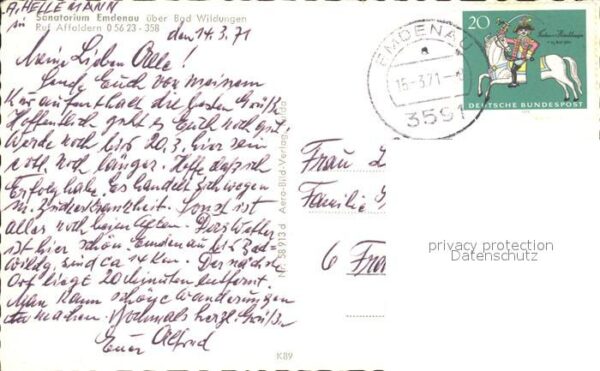 A. HELLEMANN
in Sanatorium Emdenau über Bad Wildungen
Ruf Affoldern 0 56 23 - 358
den 14.3.71
Meine Lieben Alle!
Sende Euch von meinem
Kuraufenthalt die besten Grüße
Hoffentlich geht es Euch noch gut.
Werde noch bis 20.3. hier sein
evtl. noch länger. Hoffe daß ich
Erfolg habe. Es handelt sich wegen
m. Zuckerkrankheit. Sonst ist
alles noch beim Alten. Das Wetter
ist hier schön. Emdenau bis Bad-
Wildg. sind ca 14 Km. Der nächste
Ort liegt 20 Minuten entfernt.
Man kann schöne Wanderungen
machen. Nochmals herzl. Grüße
Euer Alfred
K89
Nr. 58 913 d Aero-Bild-Verlag
EMDENAU
15-3.71
3591
20
DEUTSCHE BUNDESPOST
Frau
Familie
6
privacy protection
Datenschutz